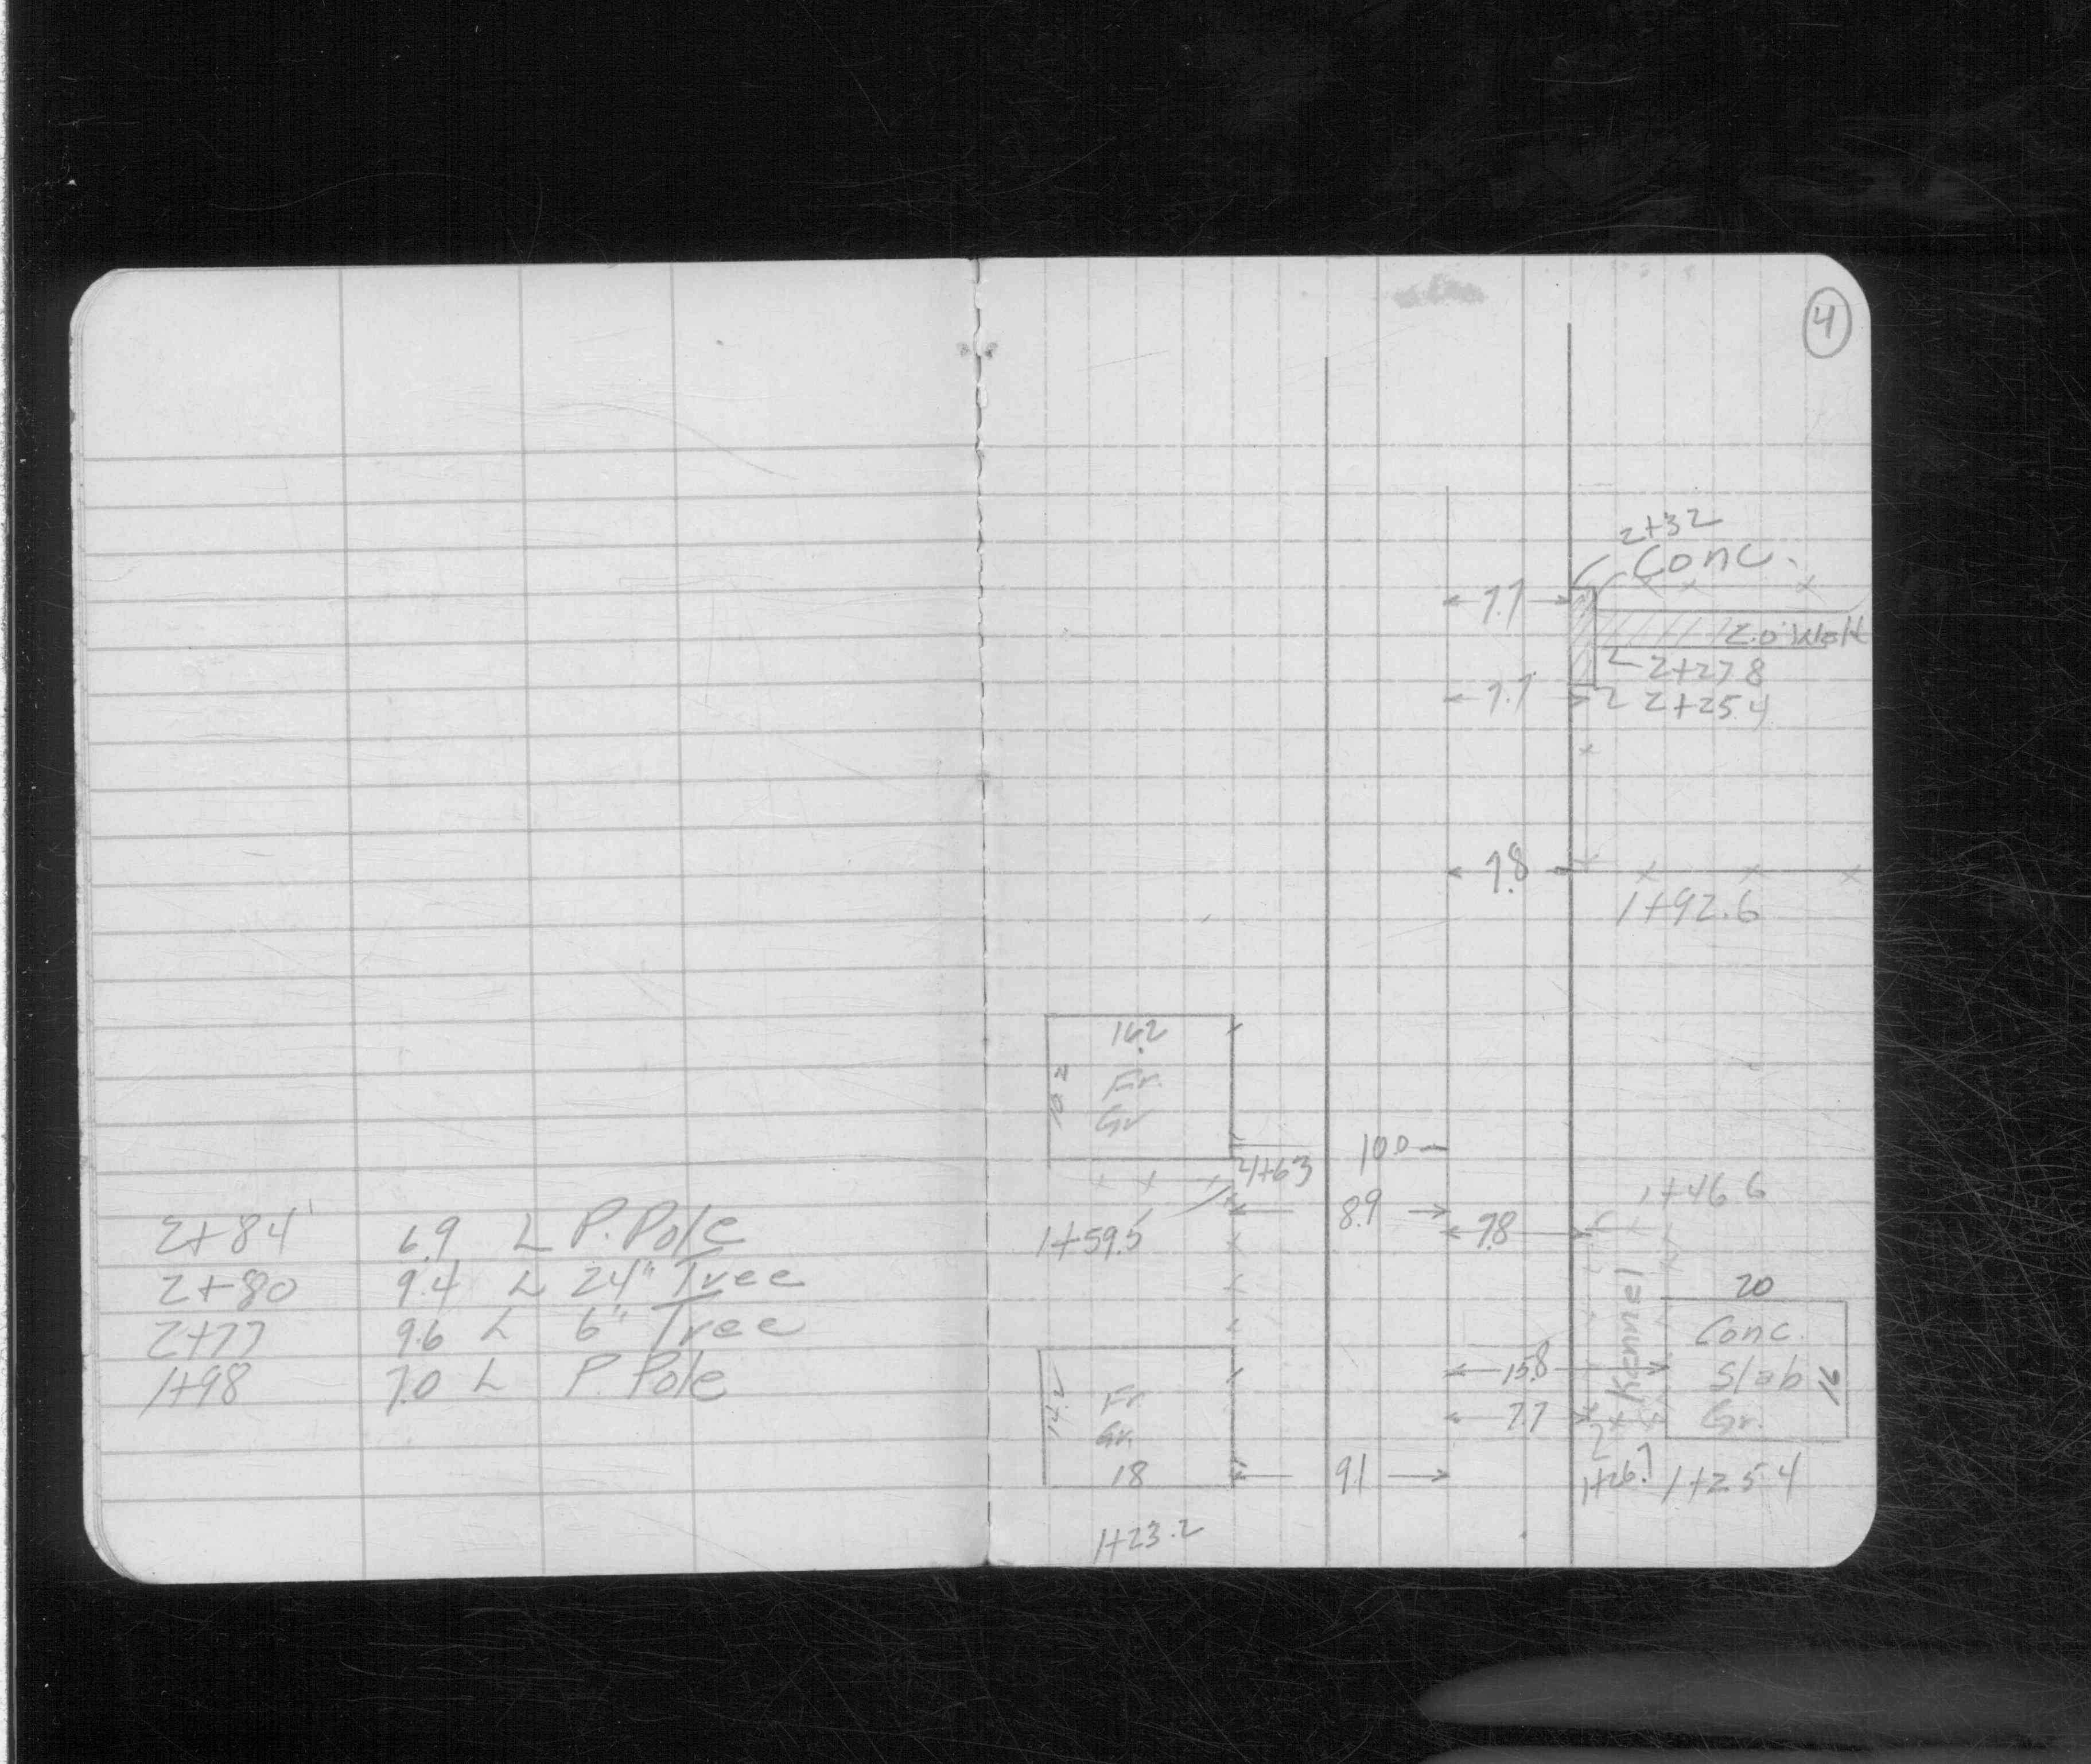 2+84 6.9 L P. Pole
2+80 9.4 L 24" Tree
2+77 9.6 L 6" Tree
1+98 7.0 L P. Pole
4
2+32
Conc.
7.7
2.0' Walk
2+27.8
7.7
2+25.4
7.8
1+92.6
16.2
Fr.
Gr
10.0
1+63
8.9
1+46.6
1+59.5
7.8
Kennel
20
Conc.
Slab
Gr.
16
15.8
7.7
14.2
Fr.
Gr.
18
9.1
1+26.7
1+25.4
1+23.2